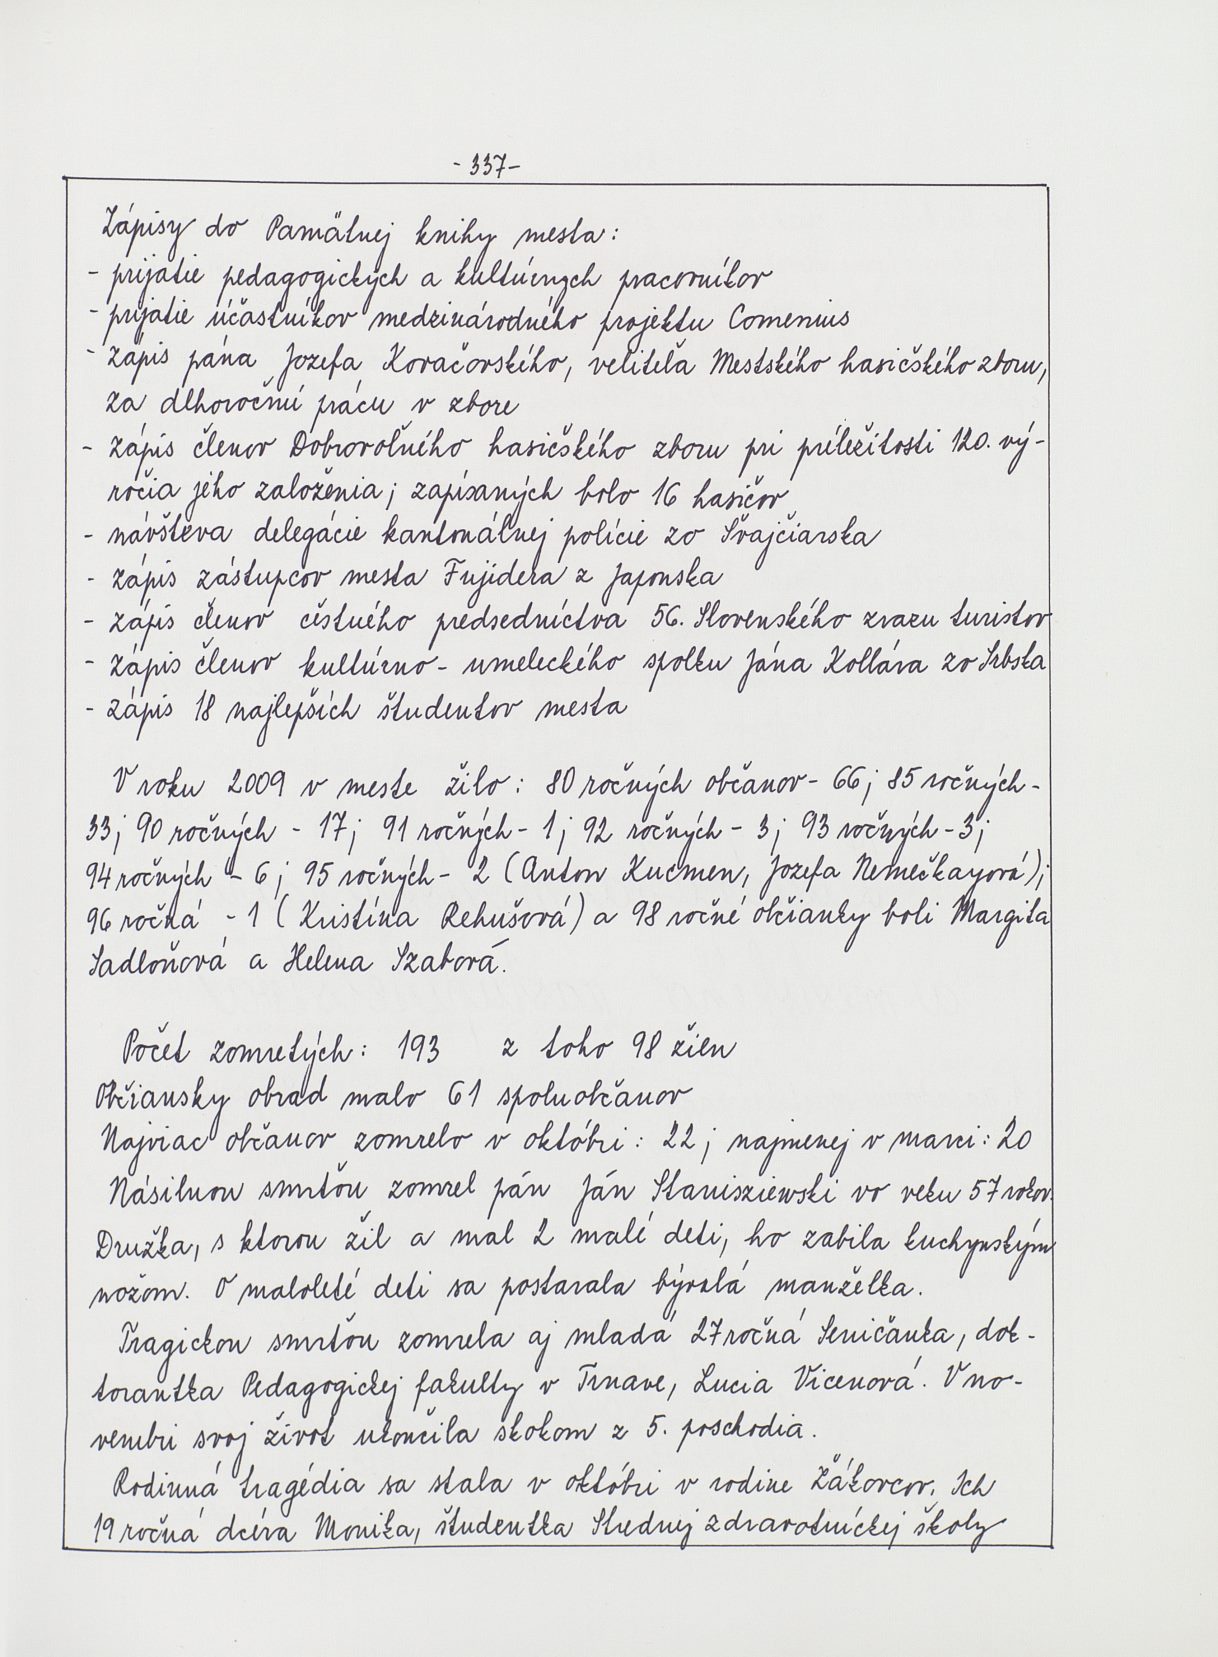 - 337 -
Zápisy do Pamätnej knihy mesta:
- prijatie pedagogických a kultúrnych pracovníkov
- prijatie účastníkov medzinárodného projektu Comenius
- zápis pána Jozefa Kovačovského, veliteľa Mestského hasičského zboru,
za dlhoročnú prácu v zbore
- zápis členov Dobrovoľného hasičského zboru pri príležitosti 120. vý-
ročia jeho založenia; zapísaných bolo 16 hasičov
- návšteva delegácie kantonálnej polície zo Švajčiarska
- zápis zástupcov mesta Fujidera z Japonska
- zápis členov čestného predsedníctva 56. Slovenského zrazu turistov
- zápis členov kultúrno-umeleckého spolku Jána Kollára zo Srbska
- zápis 18 najlepších študentov mesta
V roku 2009 v meste žilo: 80 ročných občanov - 66; 85 ročných -
33; 90 ročných - 17; 91 ročných - 1; 92 ročných - 3; 93 ročných - 3;
94 ročných - 6; 95 ročných - 2 (Anton Kucmen, Jozefa Nemečkayová);
96 ročná - 1 (Kristína Rehušová) a 98 ročné občianky boli Margita
Sadloňová a Helena Szabová.
Počet zomretých: 193 z toho 98 žien
Občiansky obrad malo 61 spoluobčanov
Najviac občanov zomrelo v októbri: 22; najmenej v marci: 20
Násilnou smrťou zomrel pán Ján Staniszievski vo veku 57 rokov.
Družka, s ktorou žil a mal 2 malé deti, ho zabila kuchynským
nožom. O maloleté deti sa postarala bývalá manželka.
Tragickou smrťou zomrela aj mladá 27 ročná Seničanka, dok-
torantka Pedagogickej fakulty v Trnave, Lucia Vicenová. V no-
vembri svoj život ukončila skokom z 5. poschodia.
Rodinná tragédia sa stala v októbri v rodine Žákovcov. Ich
19 ročná dcéra Monika, študentka Strednej zdravotníckej školy